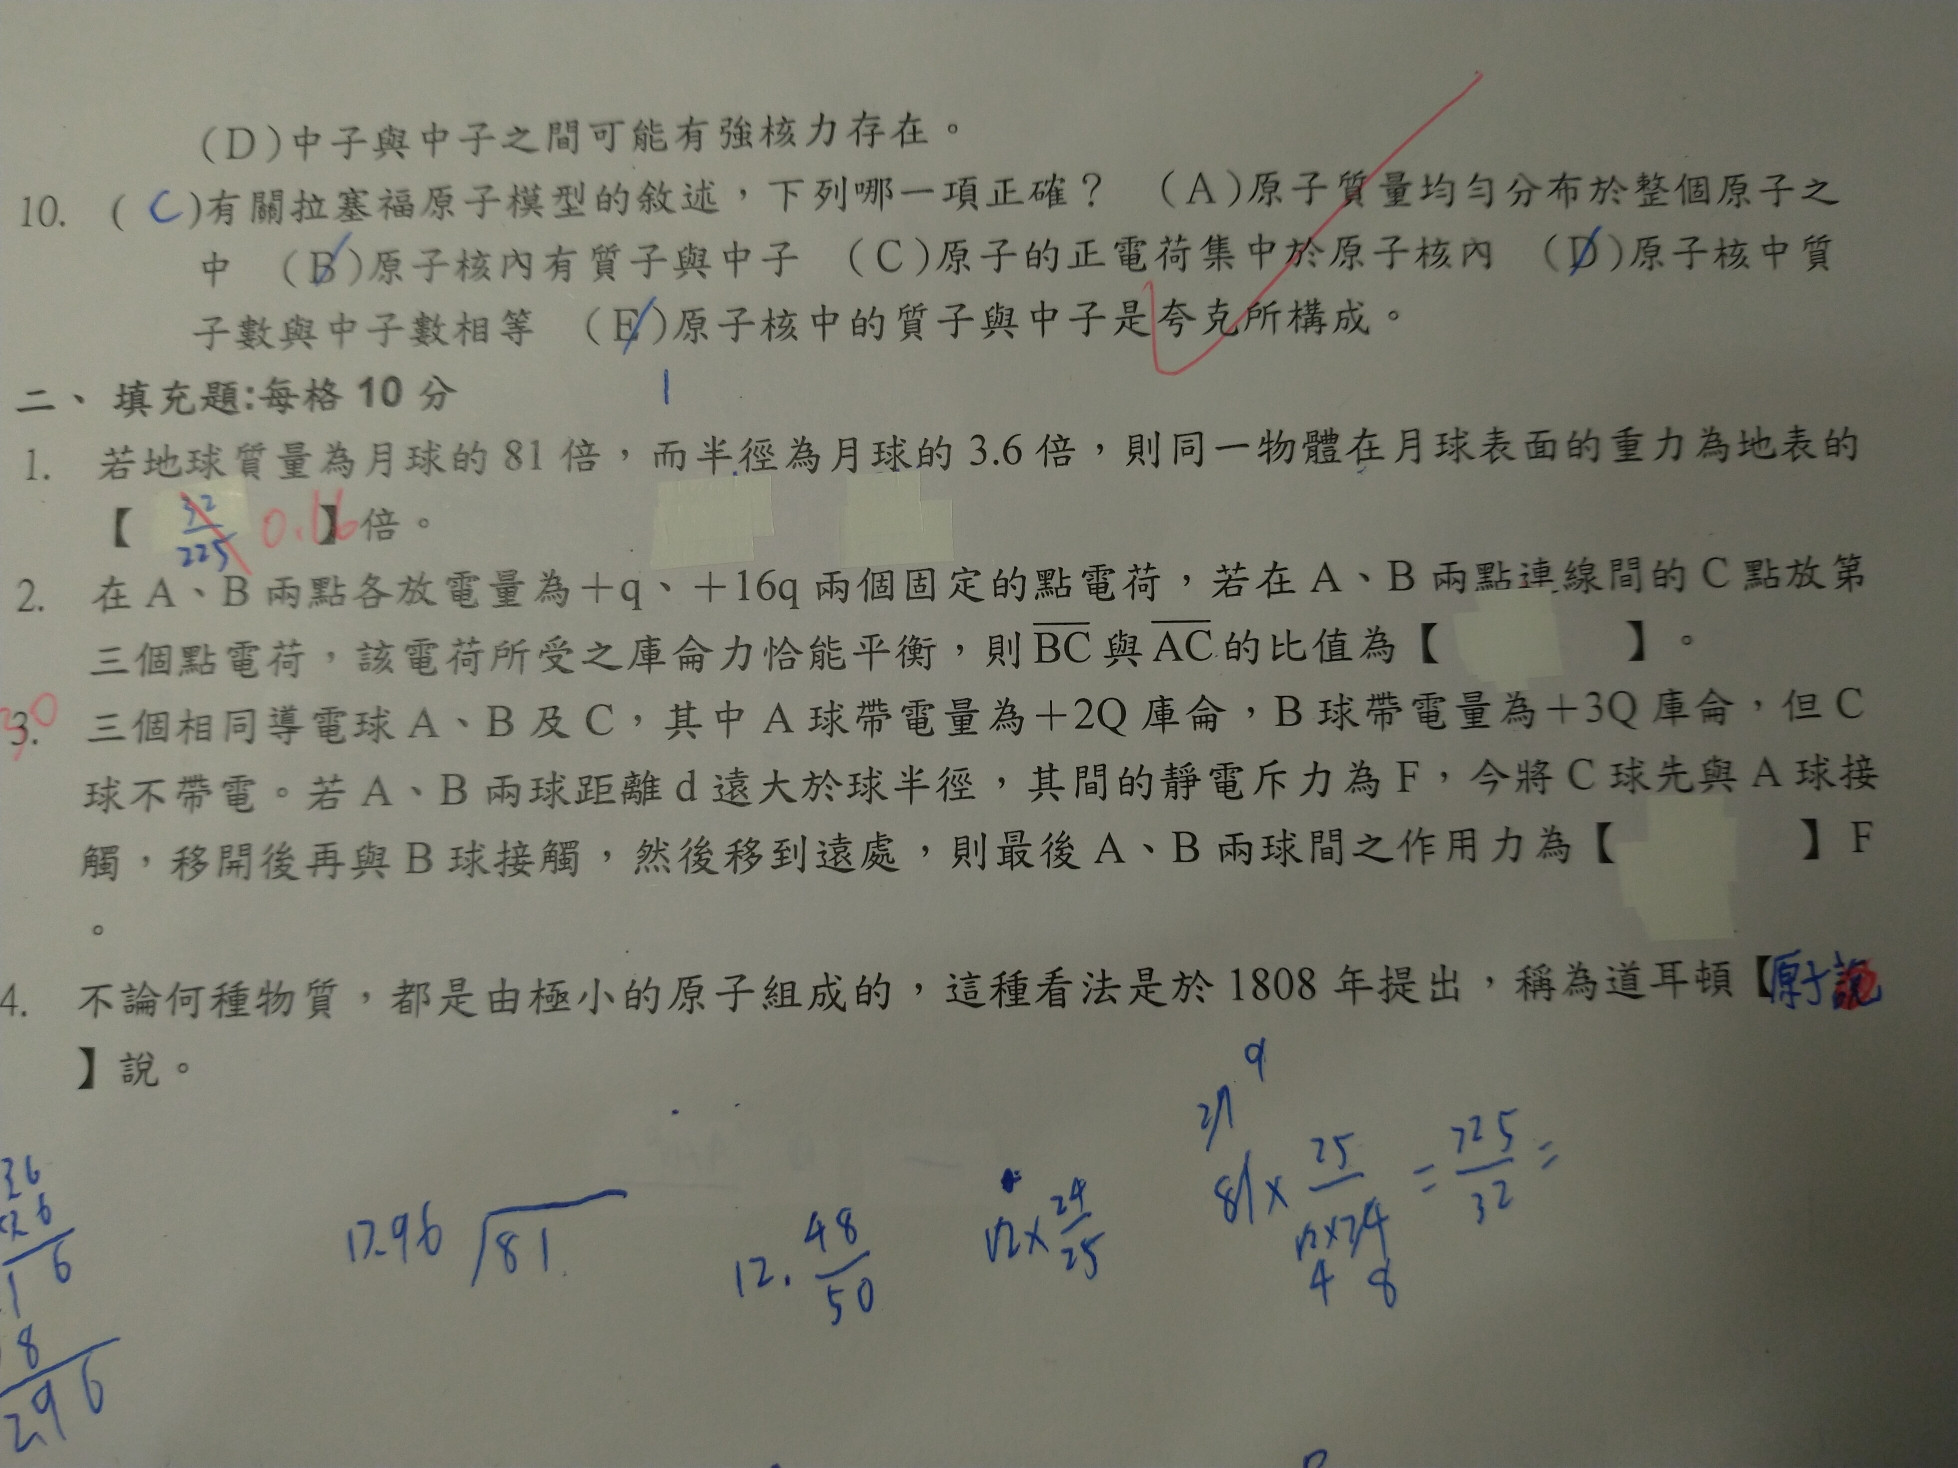 (D)中子與中子之間可能有強核力存在。
10. ( C )有關拉塞福原子模型的敘述，下列哪一項正確？ (A)原子質量均勻分布於整個原子之
中 (B)原子核內有質子與中子 (C)原子的正電荷集中於原子核內 (D)原子核中質
子數與中子數相等 (E)原子核中的質子與中子是夸克所構成。
二、填充題:每格 10 分
1. 若地球質量為月球的 81 倍，而半徑為月球的 3.6 倍，則同一物體在月球表面的重力為地表的
【 32/225 0.16 】倍。
2. 在 A、B 兩點各放電量為＋q、＋16q 兩個固定的點電荷，若在 A、B 兩點連線間的 C 點放第
三個點電荷，該電荷所受之庫侖力恰能平衡，則 BC 與 AC 的比值為【 】。
30
3. 三個相同導電球 A、B 及 C，其中 A 球帶電量為＋2Q 庫侖，B 球帶電量為＋3Q 庫侖，但 C
球不帶電。若 A、B 兩球距離 d 遠大於球半徑，其間的靜電斥力為 F，今將 C 球先與 A 球接
觸，移開後再與 B 球接觸，然後移到遠處，則最後 A、B 兩球間之作用力為【 】F
。
4. 不論何種物質，都是由極小的原子組成的，這種看法是於 1808 年提出，稱為道耳頓【原子說
】說。
9
27
81 × 25 = 225/32 =
4 8
12.96 81
12. 48/50
12 × 24/25
36
6
8
296